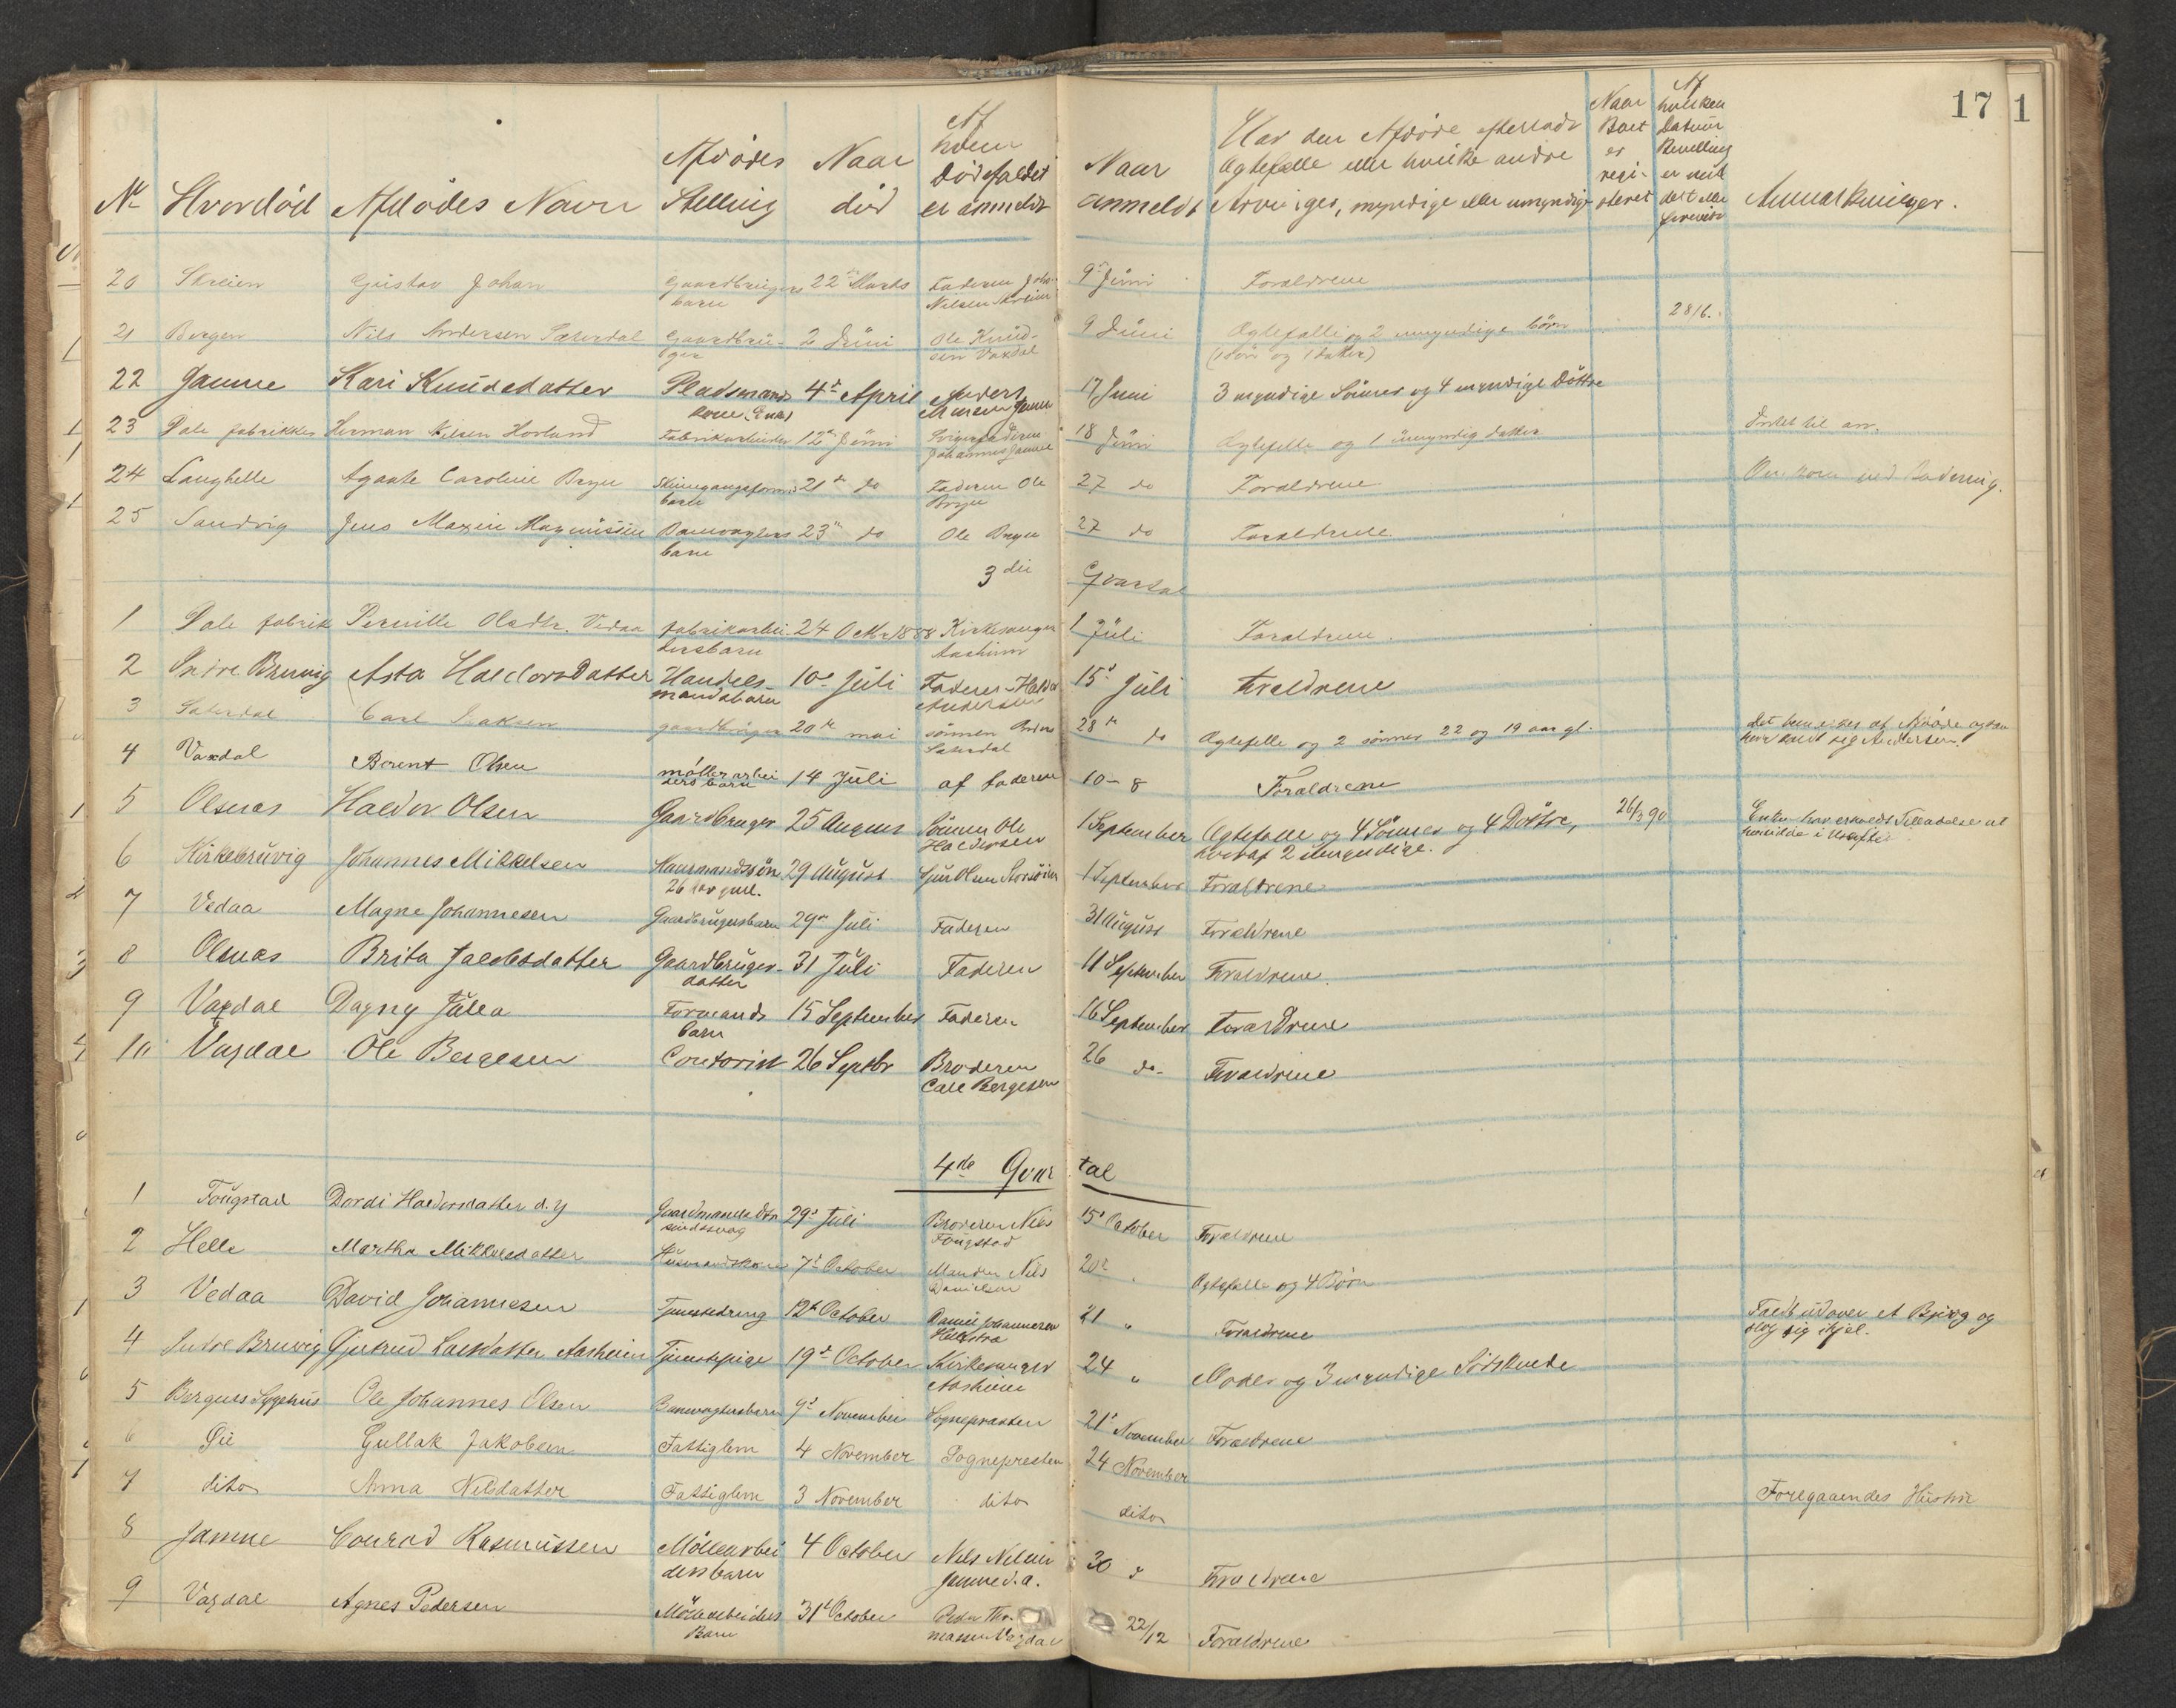 17 1
No Hvordöd Afdödes Navn Afdödes Stilling Naar död Af hvem Dödsfaldet er anmeldt Naar anmeldt Har den Afdöde efterladt Ægtefælle eller hvilke andre Arvinger, myndige eller umyndige Naar Boet er regi- streret Af hvilken Datum Bevilling er med delt eller forevist Anmærkninger.
20 Skreien Gustav Johan Gaardbrugers barn 22de Marts Faderen Joha. Nilsen Skreien 9de Juni Forældrene
21 Bergen Nils Andersen Sæterdal Gaardbru- ger 2 Juni Ole Knud- sen Vaxdal 9 Juni Ægtefælle og 2 umyndige börn (1 sön og 1 datter) 28/6.
22 Jamne Kari Knudsdatter Pladsmands kone (Enke) 4de April Anders Jamne 17 Juni 3 myndige Sönner og 4 myndige Döttre
23 Dale fabrikker Herman Nilsen Horland Fabrikarbeider 12te Juni Svigerfaderen Johannes Jamne 18 Juni Ægtefelle og 1 umyndig datter Intet til arv.
24 Langhelle Agaate Caroline Bryn Skinnegangsformands barn 21de do Faderen Ole Bryn 27 do Forældrene Omkom ved Badning.
25 Sandvig Jens Maxin Magnussen Banevogters barn 23de do Ole Bryn 27 do Forældrene.
3die Qvartal
1 Dale fabrik Pernille Olsdtr. Vedaa fabrikarbei- dersbarn 24 Oktr 1888 Kirkesanger Aasheim 1 Juli Forældrene.
2 Indre Bruvig Asta Haldorsdatter Handels- mandsbarn 10de Juli Faderen Haldor Andersen 15de Juli Forældrene
3 Sæterdal Carl Isaksen gaardbruger 20de mai sönnen Anders Sæterdal 28de do Ægtefelle og 2 sönner 22 og 19 aar gl. Det bemerkes at Afdöde ogsaa have kaldt sig Andersen.
4 Vaxdal Berent Olsen möllerarbei dersbarn 14 Juli af faderen 10 - 8 Forældrene
5 Olsnæs Haldor Olsen Gaardbruger 25 August Sönnen Ole Haldorsen 1 September Ægtefælle og 4 Sönner og 4 Döttre, hvoraf 2 umyndige. 26/3 90 Enken har erholdt Tilladelse at hensidde i Uskiftet
6 Kirkebruvig Johannes Mikkelsen Huusmandssön 26 Aar gml. 29 August Sjur Olsen 1 September Forældrene
7 Vedaa Magne Johannesen Gaardbrugersbarn 29de Juli Faderen 31 August Forældrene
8 Olsnæs Brita Jacobsdatter Gaardbruger- datter 31 Juli Faderen 11 September Forældrene.
9 Vaxdal Dagny Julia Formands barn 15 September Faderen 16 September Forældrene
10 Vaxdal Ole Bergesen Contorist 26 Septbr Broderen Carl Bergesen 26 do- Forældrene
4de Qvar tal
1 Fougstad Dordi Haldorsdatter d. y Gaardmands Dtr sindssvag 29de Juli Broderen Nils Fougstad 15de October Forældrene
2 Helle Martha Mikkelsdatter Huusmandskone 7de October Manden Nils Danielsen 20de " Ægtefælle og 4 Börn
3 Vedaa David Johannesen Tjenestedreng 12te October Daniel Johannesen 21 " Forældrene Faldt udover et Bjerg og slog sig ihjel.
4 Indre Bruvig Gjertrud Larsdatter Aasheim Tjenestepige 19de October Kirkesanger Aasheim 24 " Moder og 3 myndige Södskende
5 Bergens Sygehus Ole Johannes Olsen Banevogtersbarn 9de November Sognepræsten 21de November Forældrene
6 Gullak Jakobsen Fattiglem 4 November Sognepresten 24 November
7 dito Anna Nilsdatter Fattiglem 3 November dito dito Foregaaendes Hustru
8 Jamne Conrad Rasmussen Möllearbei dersbarn 4 October Nils Nilsen Jamne d. a. 30 " Forældrene
9 Vaxdal Agnes Pedersen Möllearbeiders Barn 31te October Peder Tho- massen Vaxdal 22/12 Forældrene